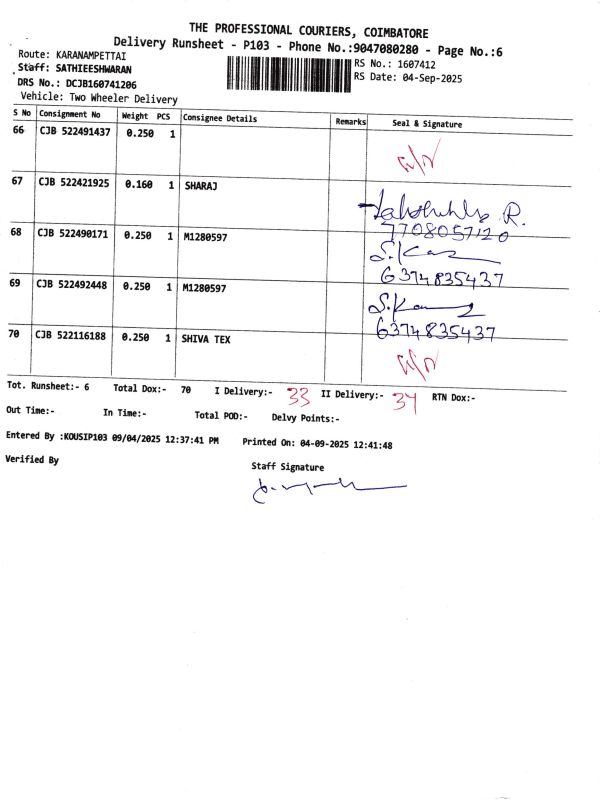 THE PROFESSIONAL COURIERS, COIMBATORE
Delivery Runsheet - P103 - Phone No.:9047080280 - Page No.:6
Route: KARANAMPETTAI
Staff: SATHIEESHWARAN
DRS No.: DCJB160741206
Vehicle: Two Wheeler Delivery
RS No.: 1607412
RS Date: 04-Sep-2025
S No Consignment No Weight PCS Consignee Details Remarks Seal & Signature
66 CJB 522491437 0.250 1
67 CJB 522421925 0.160 1 SHARAJ R.
7708057120
68 CJB 522490171 0.250 1 M1280597
6374835437
69 CJB 522492448 0.250 1 M1280597
6374835437
70 CJB 522116188 0.250 1 SHIVA TEX
Tot. Runsheet:- 6 Total Dox:- 70 I Delivery:- 33 II Delivery:- 34 RTN Dox:-
Out Time:- In Time:- Total POD:- Delvy Points:-
Entered By :KOUSIP103 09/04/2025 12:37:41 PM Printed On: 04-09-2025 12:41:48
Verified By
Staff Signature